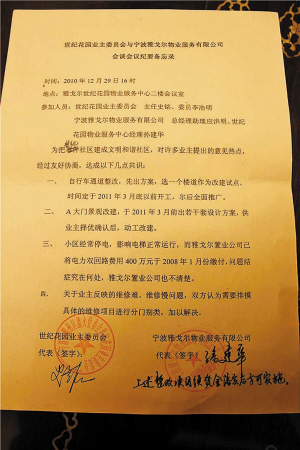 世纪花园业主委员会与宁波雅戈尔物业服务有限公司
会谈会议纪要备忘录
时间：2010年12月29日16时
地点：雅戈尔世纪花园物业服务中心二楼会议室
参加人员：世纪花园业主委员会 主任史铭、委员辛浩明
宁波雅戈尔物业服务有限公司 总经理助理应洪明、世纪
花园物业服务中心经理孙建华
为把世纪社区建成文明和谐社区，对许多业主提出的意见热点，
经过友好协商，达成以下几点共识：
一、 自行车通道整改，先出方案，选一个楼道作为改建试点，
时间定于2011年3月底以前开工，尔后全面推广。
二、 A大门景观改建，于2011年3月前出若干套设计方案，供
业主择优确认后，动工改建。
三、 小区经常停电，影响电梯正常运行，而雅戈尔置业公司已
将电力双回路费用400万元于2008年1月份缴付，问题结
症究在何处，雅戈尔置业公司也不清楚。
四、 关于业主反映的维修难、维修慢问题，双方认为需要排摸
具体的维修项目进行分门别类，加以解决。
世纪花园业主委员会 宁波雅戈尔物业服务有限公司
代表（签字）： 代表（签字）：
上述整改项目须资金落实后方可实施。